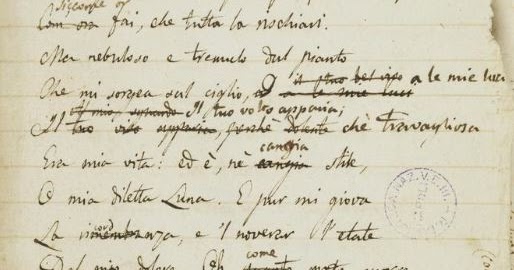 siccome or
Com ora fai, che tutta la rischiari.
Ma nebuloso e tremulo dal pianto
Che mi sorgea sul ciglio, il tuo bel viso a le mie luci
a le mie luci
Il tuo volto apparia;
Il tuo viso apparia, perchè dolente chè travagliosa
Era mia vita: ed è, nè cangia stile,
cangia
O mia diletta Luna. E pur mi giova
La ricordanza, e 'l noverar l'etate
come
Del mio dolore. Oh quanto grata